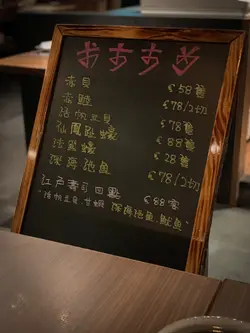 おすすめ
赤貝 €58隻
赤鯥 €78/2切
活帆立貝 €78隻
仙鳳趾蠔 €88隻
法國蠔 €28隻
深海池魚 €78/2切
江戶壽司四點 €88客
"活帆立貝,甘蝦 深海池魚,魷魚"